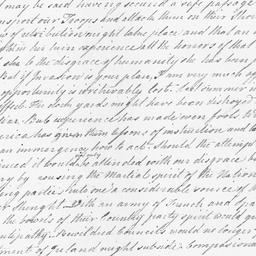 may be said having secured a safe passage
nsport our Troops and attack them on their Shor
of retribution might take place and that an
in her turn experience all the honors of that
she to the disgrace of humanity she has been
But if Invasion is your plan, I am very much af
opportunity is irretrievably lost. Last summer
effect. The dock yards might have been distroyed
Experience has made even fools
erica has given them lessons of instruction and
an immergency how to act. Should the attempt
it would be attended with our disgrace
by rousing the Martial spirit of the Nation
ing parties. Shut one a considerable source of
Strength. With an army of French and Spa
the bowels of their Country party spirit would
antipathy. Bewildered Councils would no longer
ment of Ireland might subside. Compassiona